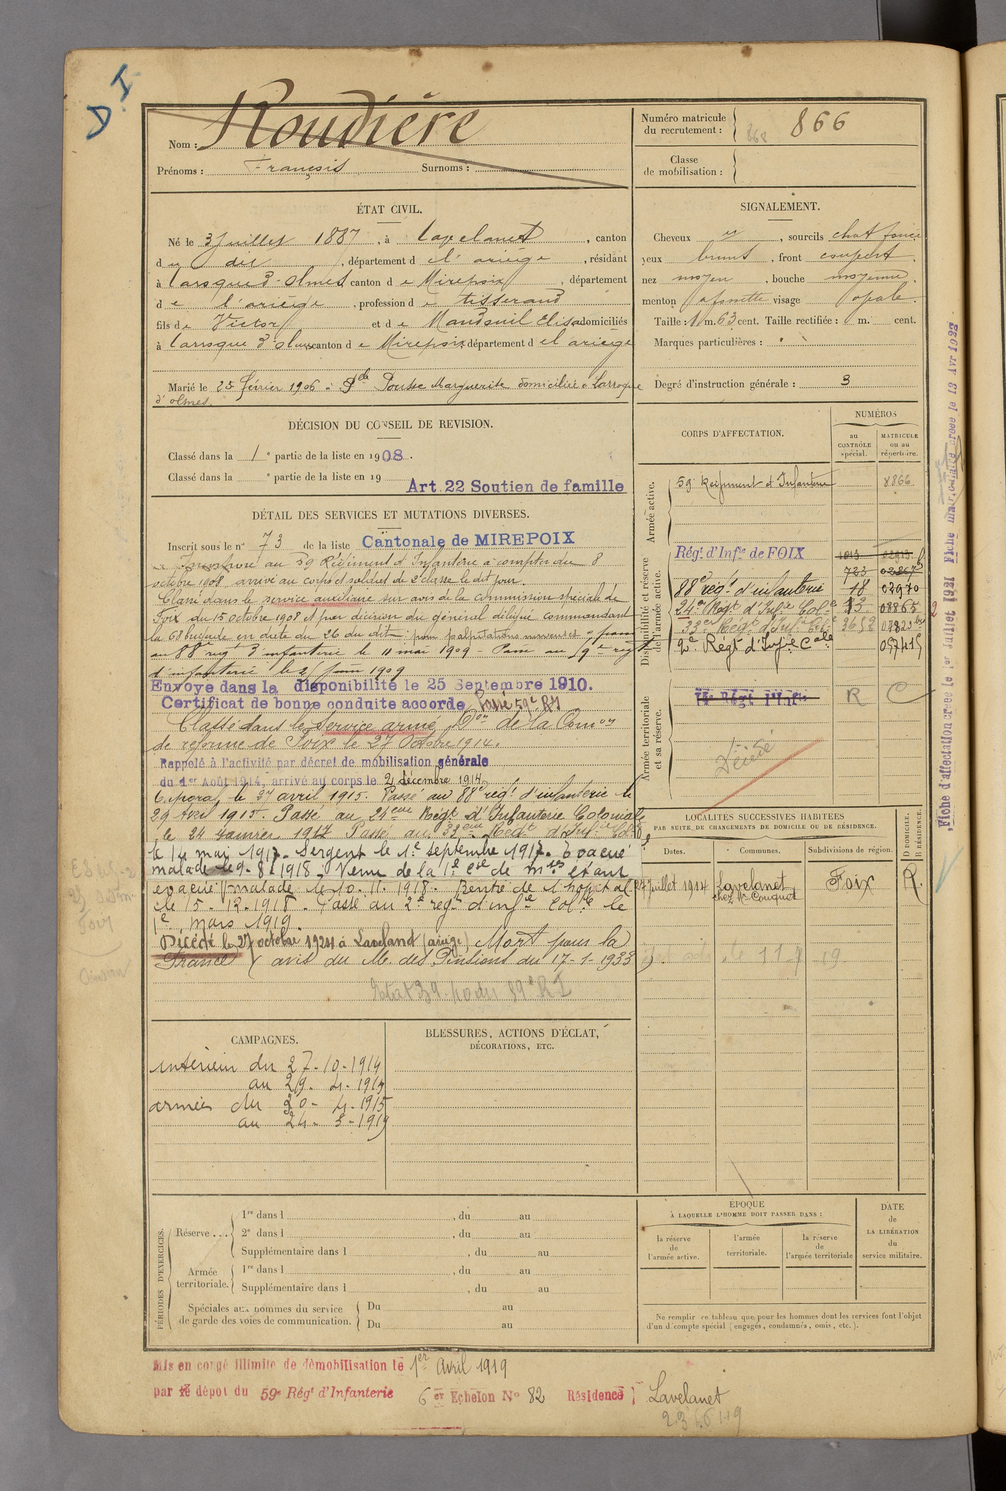 D I
Nom : Roudière
Prénoms : François Surnoms :
Numéro matricule du recrutement : 866
Classe de mobilisation :
ÉTAT CIVIL.
Né le 3 juillet 1887, à Lavelanet, canton
du dit, département de l'ariège, résidant
à Laroque d'olmes canton de Mirepoix, département
de l'ariège, profession de tisserand
fils de Victor et de Elisa domiciliés
à Laroque d'olmes canton de Mirepoix département de l'ariège
Marié le 25 février 1906 à Pousse Marguerite domiciliée à Laroque
d'olmes.
SIGNALEMENT.
Cheveux et, sourcils chat foncé
yeux bruns, front couvert.
nez moyen, bouche moyenne.
menton visage ovale.
Taille : 1 m. 63 cent. Taille rectifiée : m. cent.
Marques particulières :
Degré d'instruction générale : 3
DÉCISION DU CONSEIL DE REVISION.
Classé dans la 1e partie de la liste en 1908.
Classé dans la e partie de la liste en 19
Art. 22 Soutien de famille
DÉTAIL DES SERVICES ET MUTATIONS DIVERSES.
Inscrit sous le n° 73 de la liste Cantonale de MIREPOIX
au 59 Régiment d'Infanterie à compter du 8
octobre 1908 arrivé au corps et soldat de 2e classe le dit jour.
Classé dans le service auxiliaire sur avis de la commission spéciale de
Foix du 15 octobre 1908 et par décision du général délégué commandant
la 68 brigade en date du 26 du dit pour palpitations
au 88e régt d'infanterie le 11 mai 1909 - Passé au 9e régt
d'infanterie le 2 juin 1909
Envoyé dans la disponibilité le 25 Septembre 1910.
Certificat de bonne conduite accordé Passé 59e RI
Classé dans le service armé Don de la Comon
de réforme de Foix le 27 Octobre 1914.
Rappelé à l'activité par décret de mobilisation générale
du 1er Août 1914, arrivé au corps le 2 décembre 1914
Caporal le 27 avril 1915. Passé au 88e régt d'infanterie le
29 Avril 1915. Passé au 24eme Régt d'Infanterie Coloniale
le 24 Janvier 1917 Passé au 33eme Régt d'Inf.ie Col.le
le 14 mai 1917. Sergent le 1er septembre 1917. Evacué
malade le 9-8-1918. Venu de la 1e Cie de mses étant
évacué malade le 10.11.1918. Rentré de l'hôpital
le 15-12-1918. Passé au 2e régt d'infie Colle le
1er mars 1919
Décédé le 27 octobre 1924 à Lavelanet (ariège) Mort pour la
France (avis du M. des Pensions du 17-1-1933).
CORPS D'AFFECTATION.
NUMÉROS
au CONTRÔLE spécial.
MATRICULE ou au répertoire.
Armée active.
59 Régiment d'Infanterie 8866
Disponibilité et réserve de l'armée active.
Régt d'Infie de FOIX
723
88e régt d'infanterie 18 02970
24e Régt d'Infie Cole 13 08865
33eme Régt d'Infie Cole
2e Régt d'Infie Cole
Armée territoriale et sa réserve.
R C
Décédé
LOCALITÉS SUCCESSIVES HABITÉES
PAR SUITE DE CHANGEMENTS DE DOMICILE OU DE RÉSIDENCE.
Dates. Communes. Subdivisions de région. D DOMICILE. R RÉSIDENCE.
juillet 1914 Lavelanet Foix R.
chez Mr Couquet
CAMPAGNES.
intérieur du 27-10-1914
au 29-4-1915
armées du 30-4-1915
au 24-3-1919
BLESSURES, ACTIONS D'ÉCLAT,
DÉCORATIONS, ETC.
PÉRIODES D'EXERCICES.
Réserve ...
1re dans l , du au
2e dans l , du au
Supplémentaire dans l , du au
Armée territoriale.
1re dans l , du au
Supplémentaire dans l , du au
Spéciales aux hommes du service de garde des voies de communication.
Du au
Du au
ÉPOQUE
À LAQUELLE L'HOMME DOIT PASSER DANS :
la réserve de l'armée active.
l'armée territoriale.
la réserve de l'armée territoriale
DATE de LA LIBÉRATION du service militaire.
Ne remplir ce tableau que pour les hommes dont les services font l'objet
d'un décompte spécial (engagés, condamnés, omis, etc.).
Mis en congé illimité de démobilisation le 1er Avril 1919
par le dépôt du 59e Régt d'Infanterie 6 er Echelon N° 82 Résidence : Lavelanet